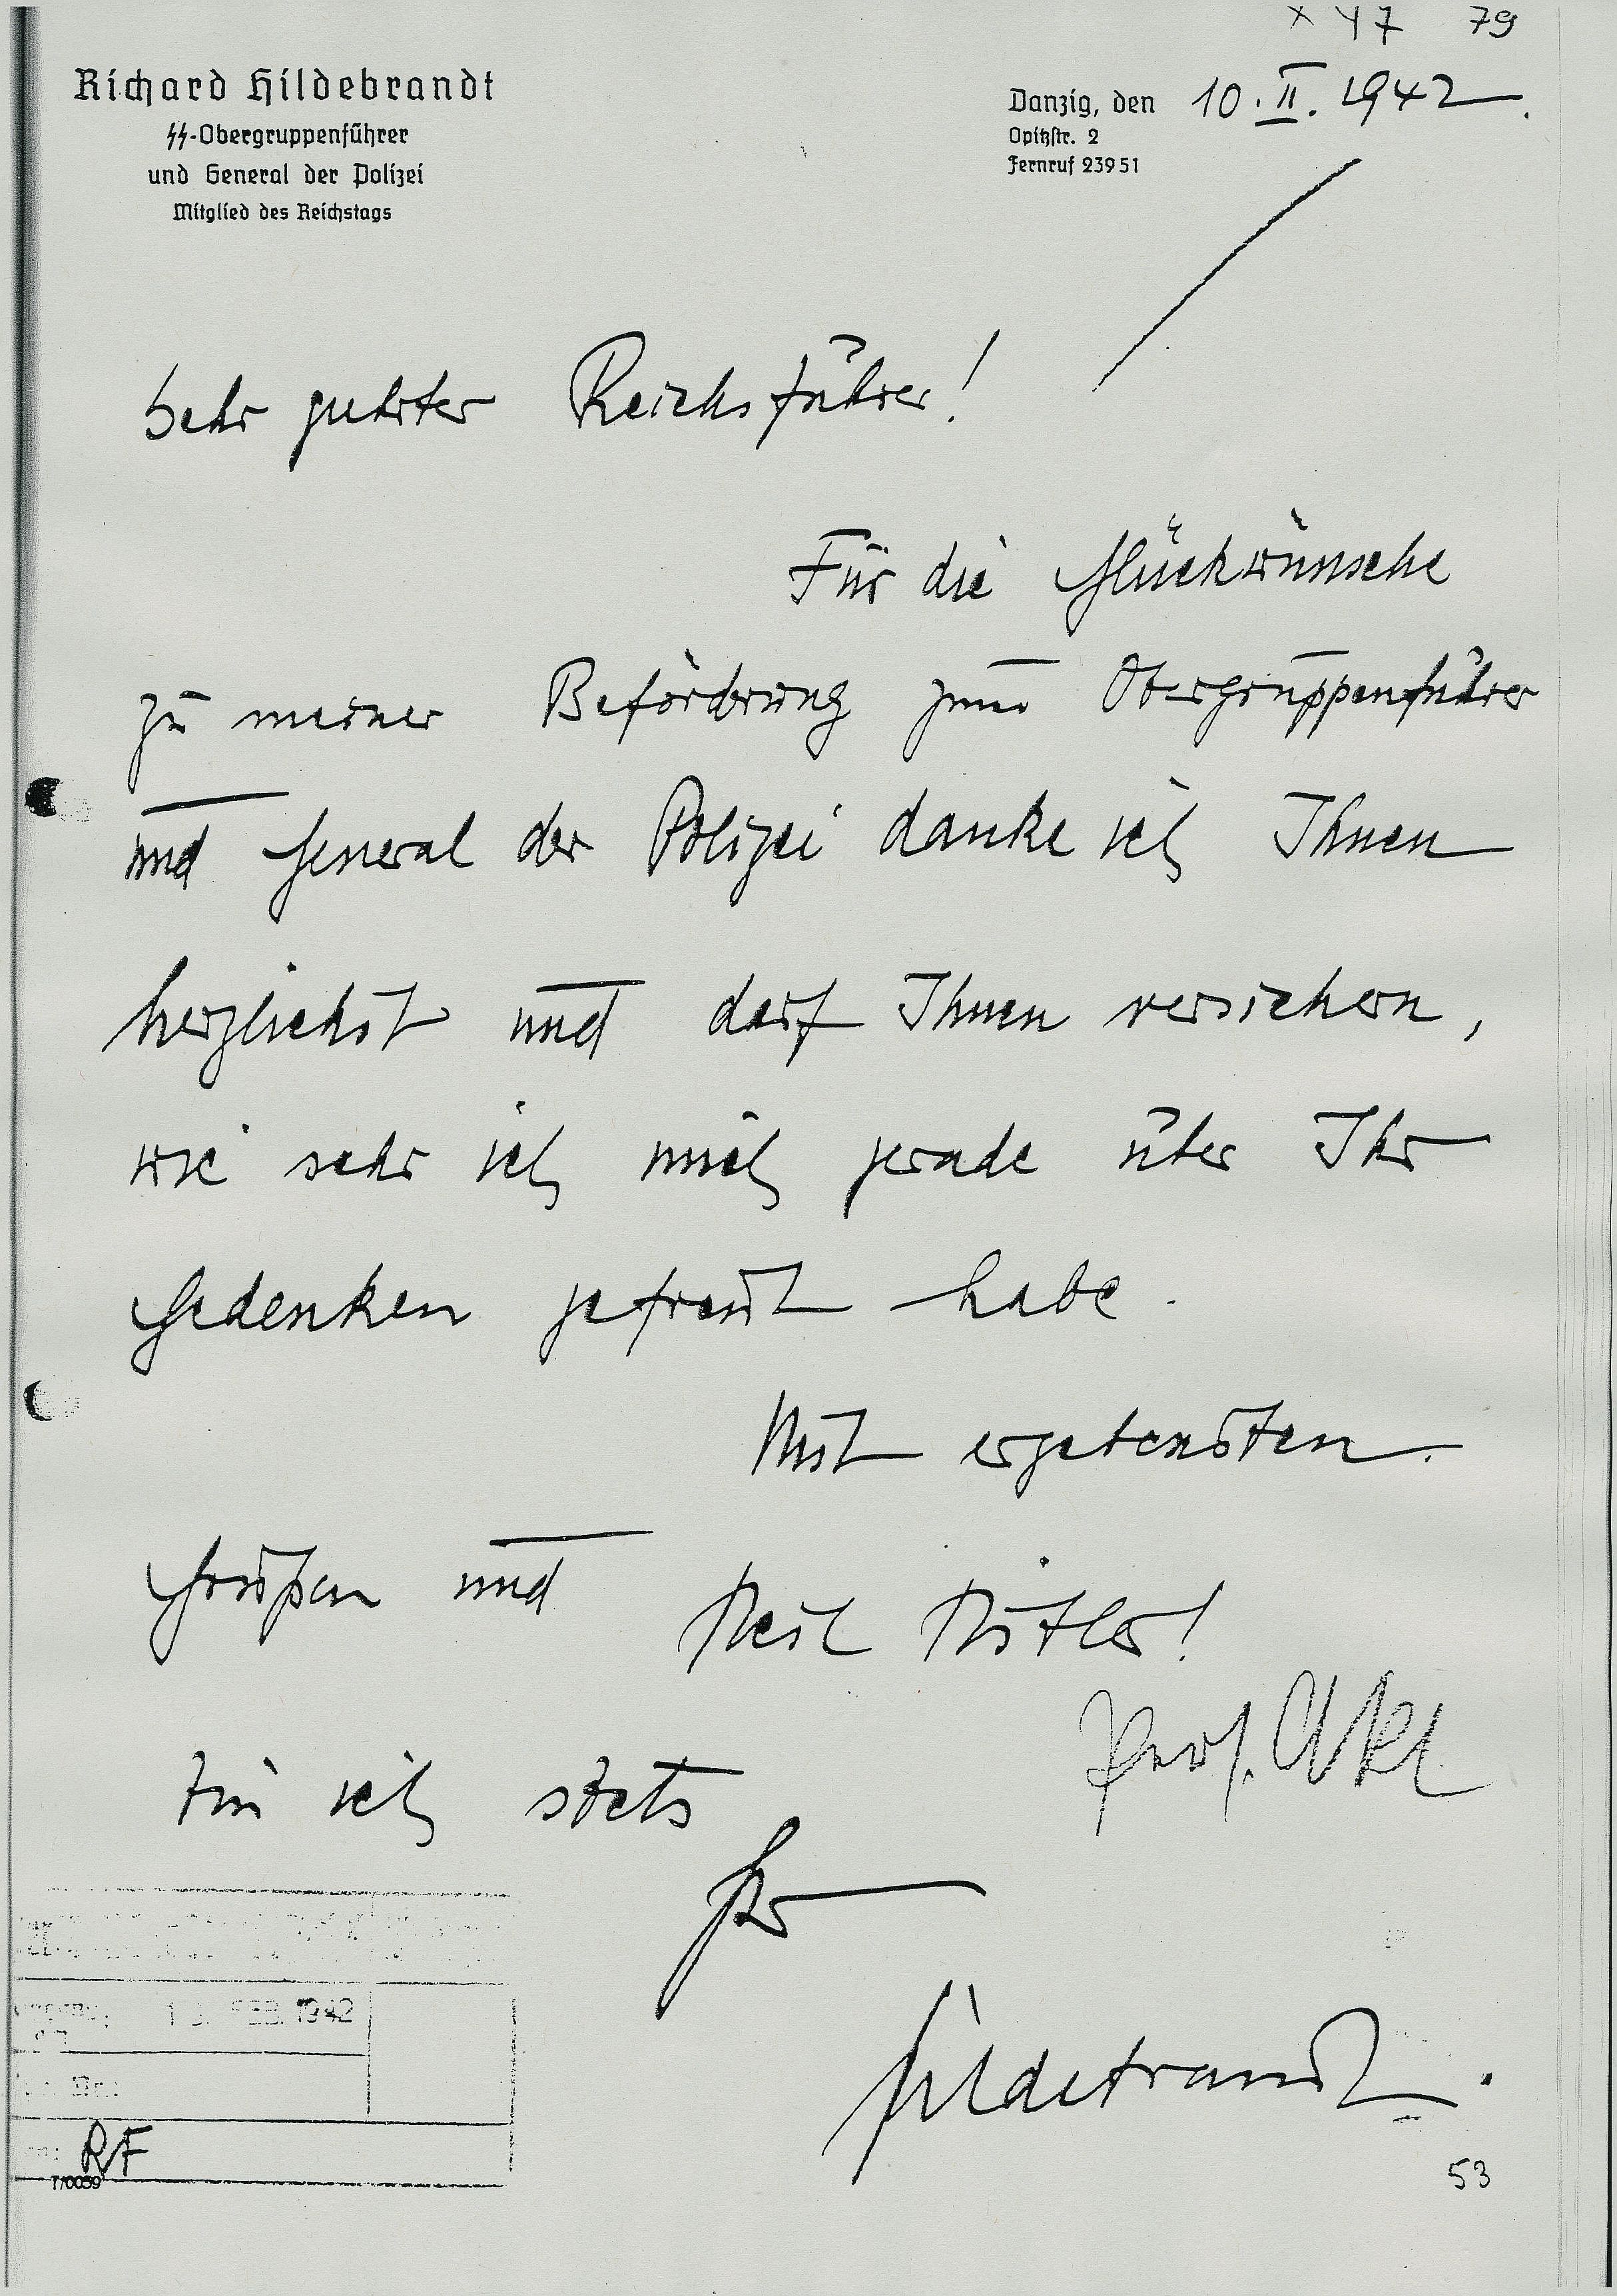 x Y 7 79
Richard Hildebrandt
SS-Obergruppenführer
und General der Polizei
Mitglied des Reichstags
Danzig, den 10. II. 1942.
Opitzstr. 2
Fernruf 23951
Sehr geehrter Reichsführer!
Für die Glückwünsche
zu meiner Beförderung zum Obergruppenführer
und General der Polizei danke ich Ihnen
herzlichst und darf Ihnen versichern,
wie sehr ich mich gerade über Ihr
Gedenken gefreut habe.
Mit ergebensten
Grüßen und Heil Hitler!
bin ich stets
Ihr
Hildebrandt.
FEB. 1942
RF
T/0059
53